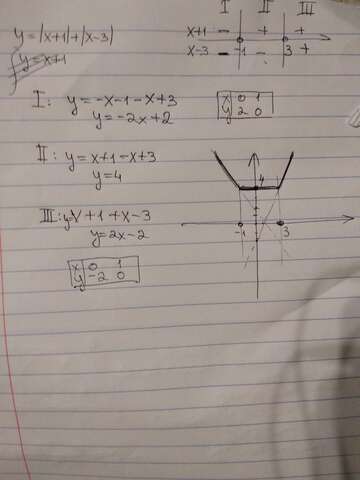 y=|x+1|+|x-3|
I II III
x+1 - + +
x-3 - - +
-1 3
I: y=-x-1-x+3
y=-2x+2
x 0 1
y 2 0
II: y=x+1-x+3
y=4
III: y=x+1+x-3
y=2x-2
x 0 1
y -2 0
4
-1 3